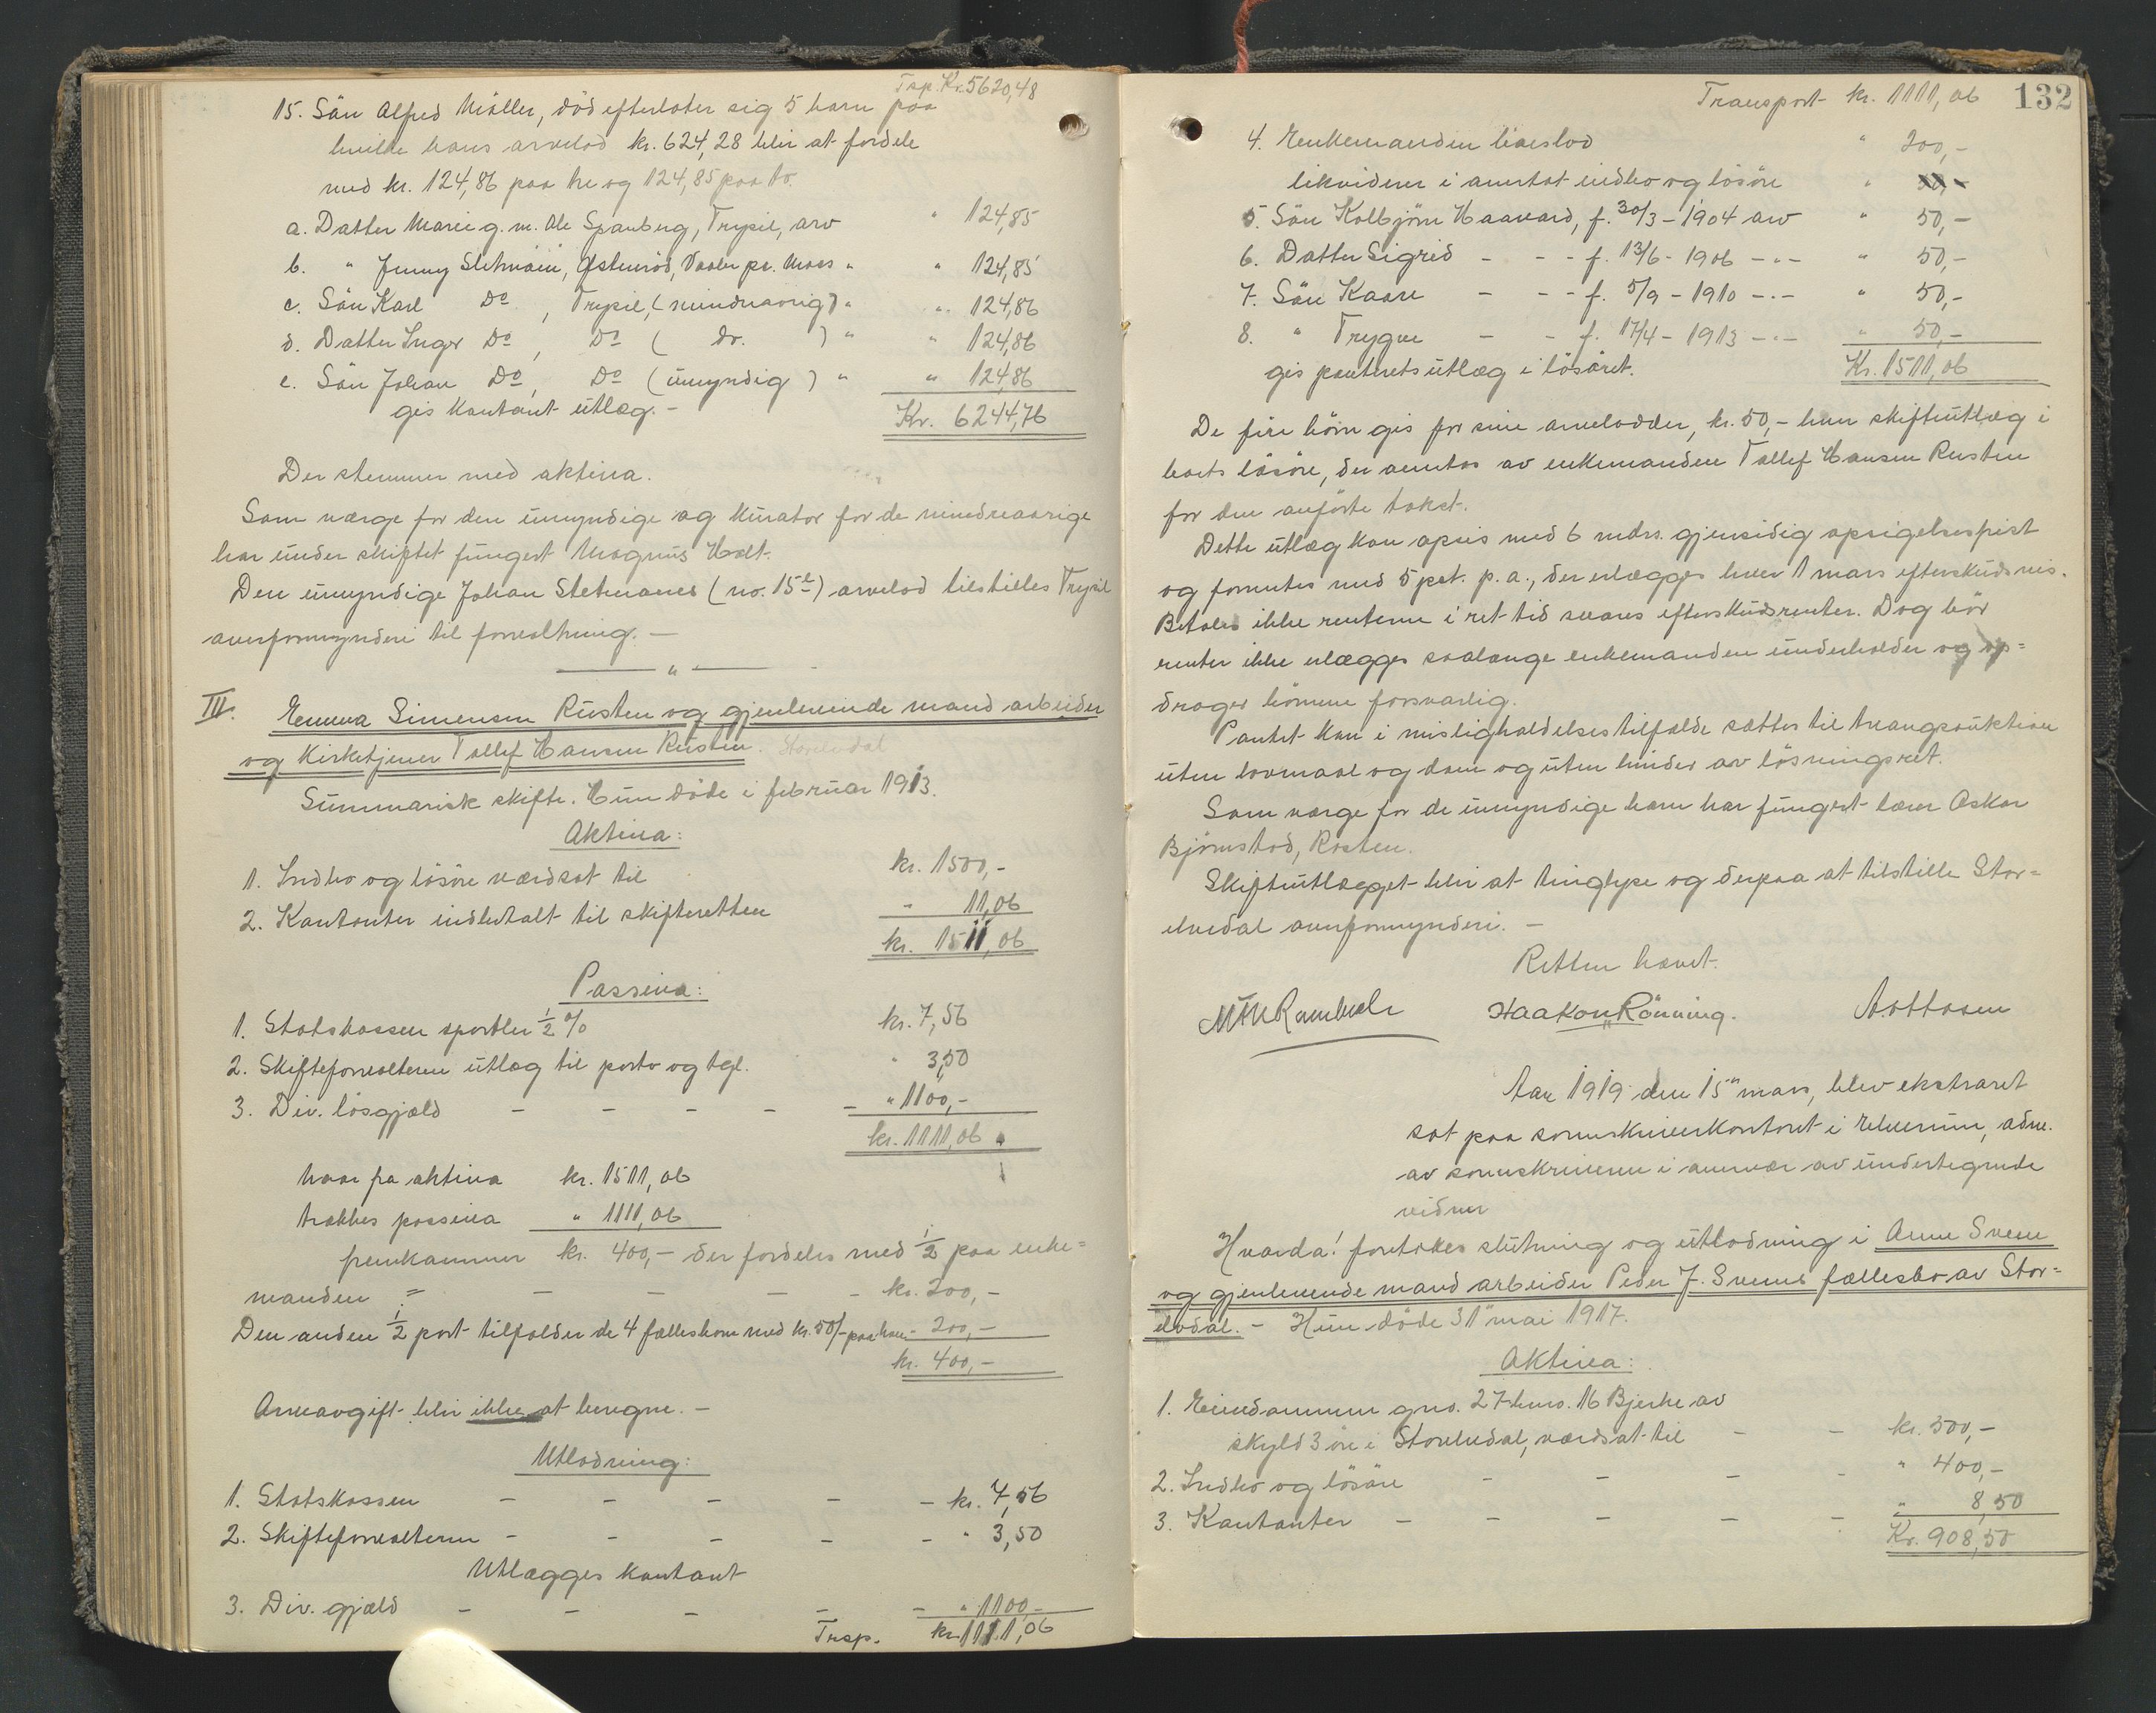 Tsp. Kr. 5620,48
15. Sön Alfred Möller, död efterlater sig 5 barn paa
hvilke hans arvelod kr. 624,28 blir at fordele
med kr. 124,86 paa tre og 124,85 paa to.
a. Datter Marie g. m. Ole Spanberg, Trysil, arv " 124,85
b. " Jenny Sletmoen, Östenröd, Vaaler pr. Moss " " 124,85
c. Sön Karl Do , Trysil, (mindreaarig) " " 124,86
d. Datter Inger Do , Do ( do. ) " " 124,86
e. Sön Johan Do , Do (umyndig) " " 124,86
gis kontant utlæg. - Kr. 6244,76
Der stemmer med aktiva.
Som værge for den umyndige og kurator for de mindreaarige
har under skiftet fungert Magnus Holt.
Den umyndige Johan Sletmoens (no. 15 e) arvelod tilstilles Trysil
overformynderi til forvaltning. -
III. Emma Simensen Rusten og gjenlevende mand arbeider
og Kirketjener Tollef Hansen Rusten. Storelvdal
Summarisk skifte. Hun döde i februar 1913.
Aktiva:
1. Indbo og lösöre værdsat til kr. 1500,-
2. Kontanter indbetalt til skifteretten " 11,06
kr. 1511,06
Passiva:
1. Statskassen sportler 1/2 % kr. 7,56
2. Skifteforvalteren utlæg til porto og tgl. " 3,50
3. Div. lösgjæld - - - - - " 1100,-
kr. 1111,06
hvor fra aktiva kr. 1511,06
trækkes passiva " 1111,06
fremkommer kr. 400,- der fordeles med 1/2 paa enke=
manden = - - - - kr. 200,-
Den anden 1/2 part tilfalder de 4 fællesbarn med kr. 50,- paa hver - 200,-
kr. 400,-
Arveavgift blir ikke at beregne. -
Utlodning:
1. Statskassen - - - - - kr. 7,56
2. Skifteforvalteren - - - - - " 3,50
Utlægges kontant
3. Div. gjæld - - - - - " 1100,-
Trsp. kr. 1111,06
Transport kr. 1111,06 132
4. Enkemanden boeslod " 200,-
likviderer i avertat indbo og lösöre "
5. Sön Kolbjörn Haavard, f. 30/3 - 1904 arv " 50,-
6. Datter Sigrid - - - f. 13/6 - 1906 - " - " 50,-
7. Sön Kaare - - - f. 5/9 - 1910 - " - " 50,-
8. " Trygve - - f. 17/4 - 1913 - " - " 50,-
gis panterets utlæg i lösöret. Kr. 1511,06
De fire börn gis for sine arvelodder, kr. 50,- hver skifteutlæg i
boets lösöre, der avertas av enkemanden Tollef Hansen Rusten
for den anförte takst.
Dette utlæg kan opsies med 6 mdrs. gjensidig opsigelsesfrist
og forrentes med 5 pct. p. a., der erlægges hver 1 mars efterskudsvis.
Betales ikke renterne i ret tid svares efterskudsrenter. Dog bör
renter ikke erlægges saalænge enkemanden underholder og op=
drager börnene forsvarlig.
Pantet kan i misligholdelsestilfælde sættes til tvangsauktion
uten lovmaal og dom og uten hinder av lösningsret.
Som værge for de umyndige barn har fungert lærer Oskar
Björnstad, Rasten.
Skifteutlægget blir at tinglyse og derpaa at tilstille Stor=
elvedal overformynderi. -
Retten hævet.
Haakon Rönning. A. Ottosen
Aar 1919 den 15de mars, blev ekstraret
sat paa sorenskriverkontoret i Elverum, adm.
av sorenskriveren i nærvær av undertegnede
vidner
Hvorda: foretokes slutning og utlodning i Anne Sveen
og gjenlevende mand arbeider Peder J. Sveens fællesbo av Stor=
elvdal. - Hun döde 31te mai 1917.
Aktiva:
1. Eiendommen gno. 27 bno. 16 Bjerke av
skyld 3 öre i Storelvdal, værdsat til - - kr. 500,-
2. Indbo og lösöre - - - - " 400,-
3. Kontanter - - - - - " 8,50
Kr. 908,50